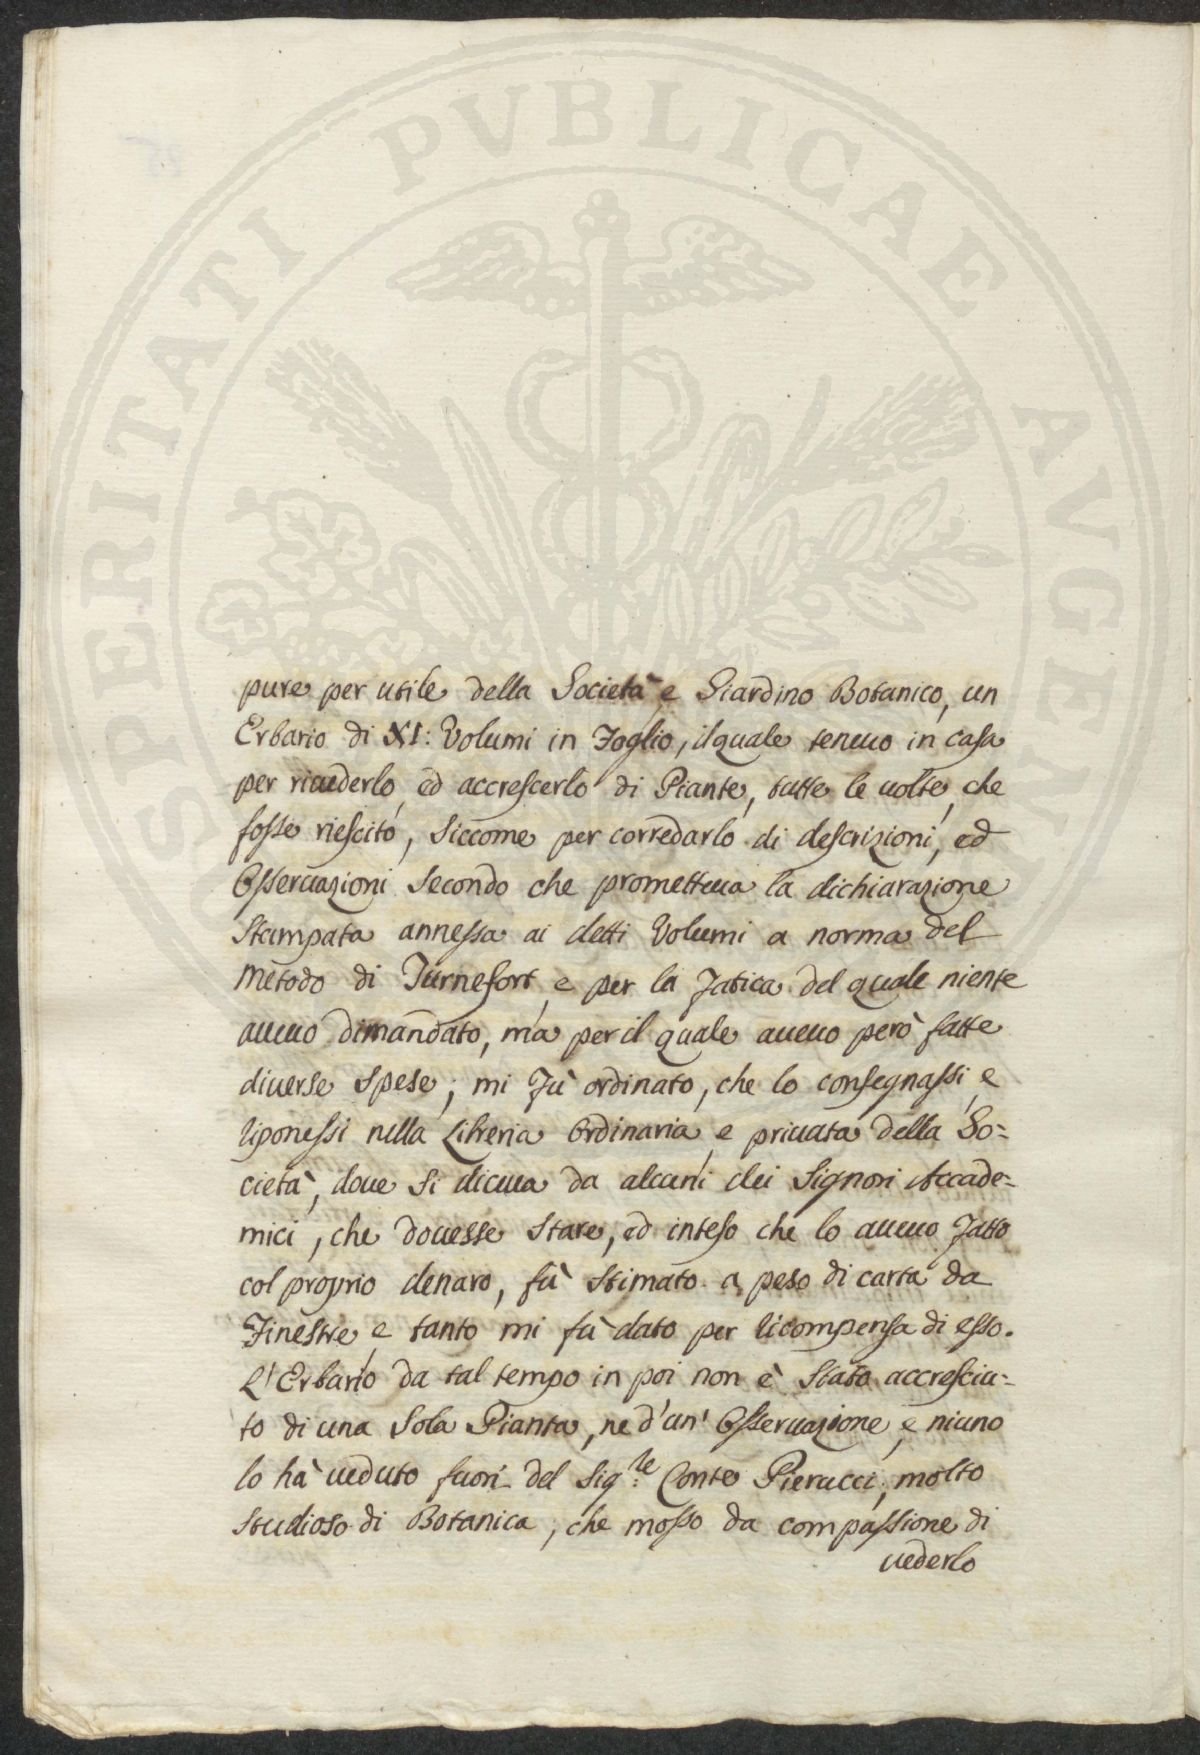 PROSPERITATI PVBLICAE AVGENDAE
pure per utile della Società, e Giardino Botanico, un
Erbario di XI: Volumi in Foglio, il quale tenevo in casa
per rivederlo, ed accrescerlo di Piante, tutte le volte, che
fosse riescito, siccome per corredarlo di descrizioni, ed
Osservazioni secondo che prometteva la dichiarazione
Stampata annessa ai detti Volumi a norma del
Metodo di Turnefort, e per la fatica del quale niente
avevo dimandato, ma per il quale avevo però fatte
diverse Spese; mi fù ordinato, che lo consegnassi, e
riponessi nella Libreria Ordinaria, e privata della So=
cietà, dove si diceva da alcuni dei Signori Accade=
mici, che dovesse stare, ed inteso che lo avevo fatto
col proprio denaro, fù stimato a peso di carta da
Finestre, e tanto mi fù dato per ricompensa di esso.
L'Erbario da tal tempo in poi non è stato accresciu=
to di una sola Pianta, ne d'un' Osservazione, e niuno
lo hà veduto fuori del Sig:re Conte Pierucci, molto
Studioso di Botanica, che mosso da compassione di
vederlo